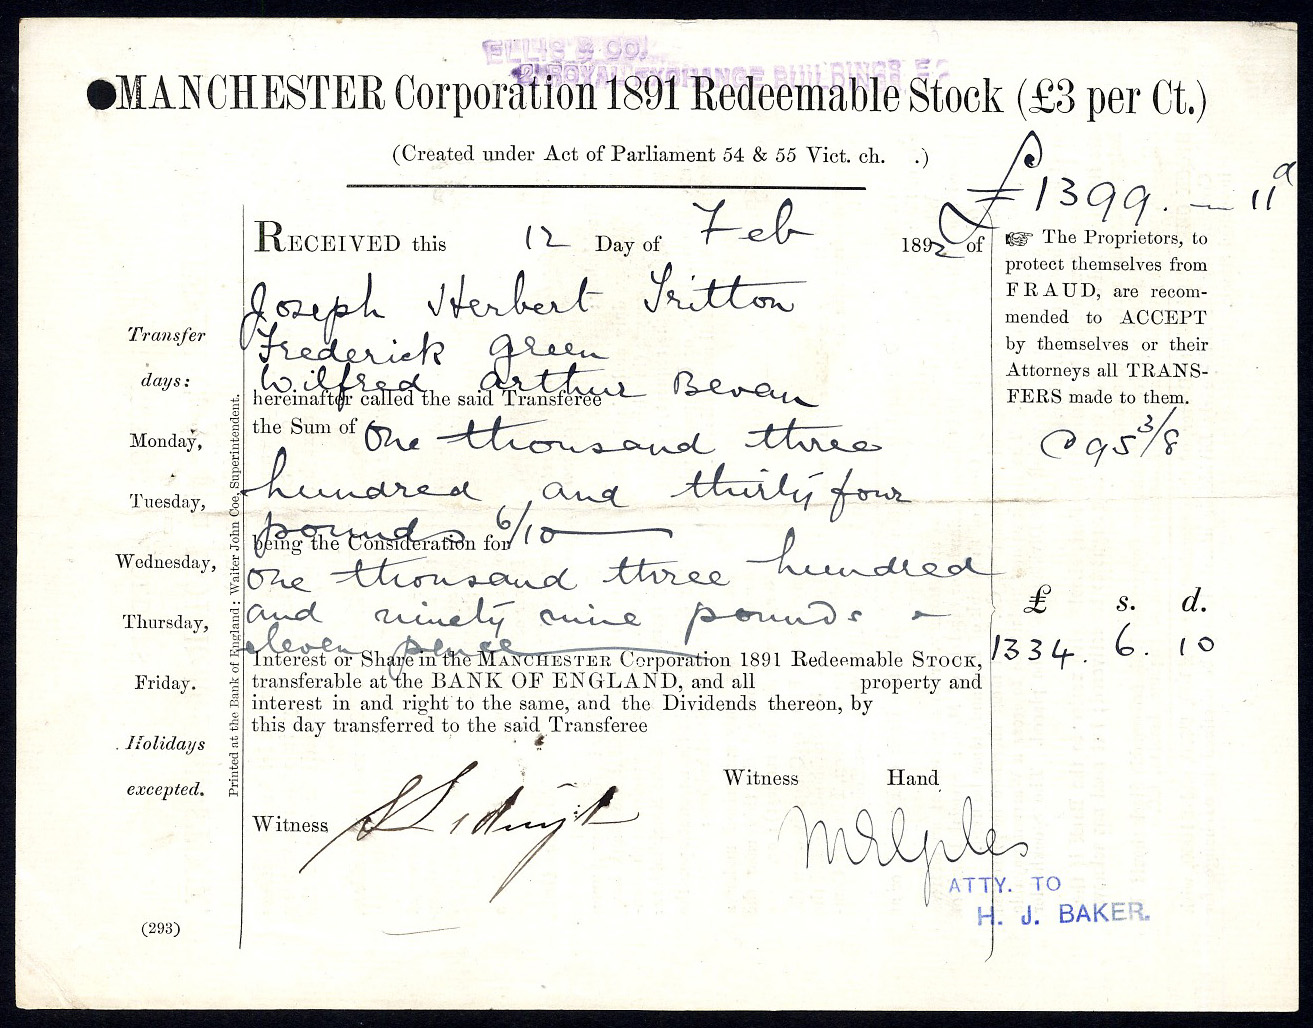 ELLIS & CO.
2 ROYAL EXCHANGE BUILDINGS E.C
MANCHESTER Corporation 1891 Redeemable Stock (£3 per Ct.)
(Created under Act of Parliament 54 & 55 Vict. ch. .)
£1399. — 11d
RECEIVED this 12 Day of Feb 1892 of
Joseph Herbert Tritton
Frederick Green
Wilfred Arthur Bevan
hereinafter called the said Transferee
the Sum of One thousand three
hundred and thirty four
pounds 6/10
being the Consideration for
One thousand three hundred
and ninety nine pounds
eleven pence
Interest or Share in the MANCHESTER Corporation 1891 Redeemable STOCK,
transferable at the BANK OF ENGLAND, and all property and
interest in and right to the same, and the Dividends thereon, by
this day transferred to the said Transferee
Witness Hand
Witness
ATTY. TO
H. J. BAKER.
Transfer
days:
Monday,
Tuesday,
Wednesday,
Thursday,
Friday.
Holidays
excepted.
(293)
Printed at the Bank of England: Walter John Coe, Superintendent.
☞ The Proprietors, to
protect themselves from
FRAUD, are recom-
mended to ACCEPT
by themselves or their
Attorneys all TRANS-
FERS made to them.
@ 95 3/8
£ s. d.
1334. 6. 10